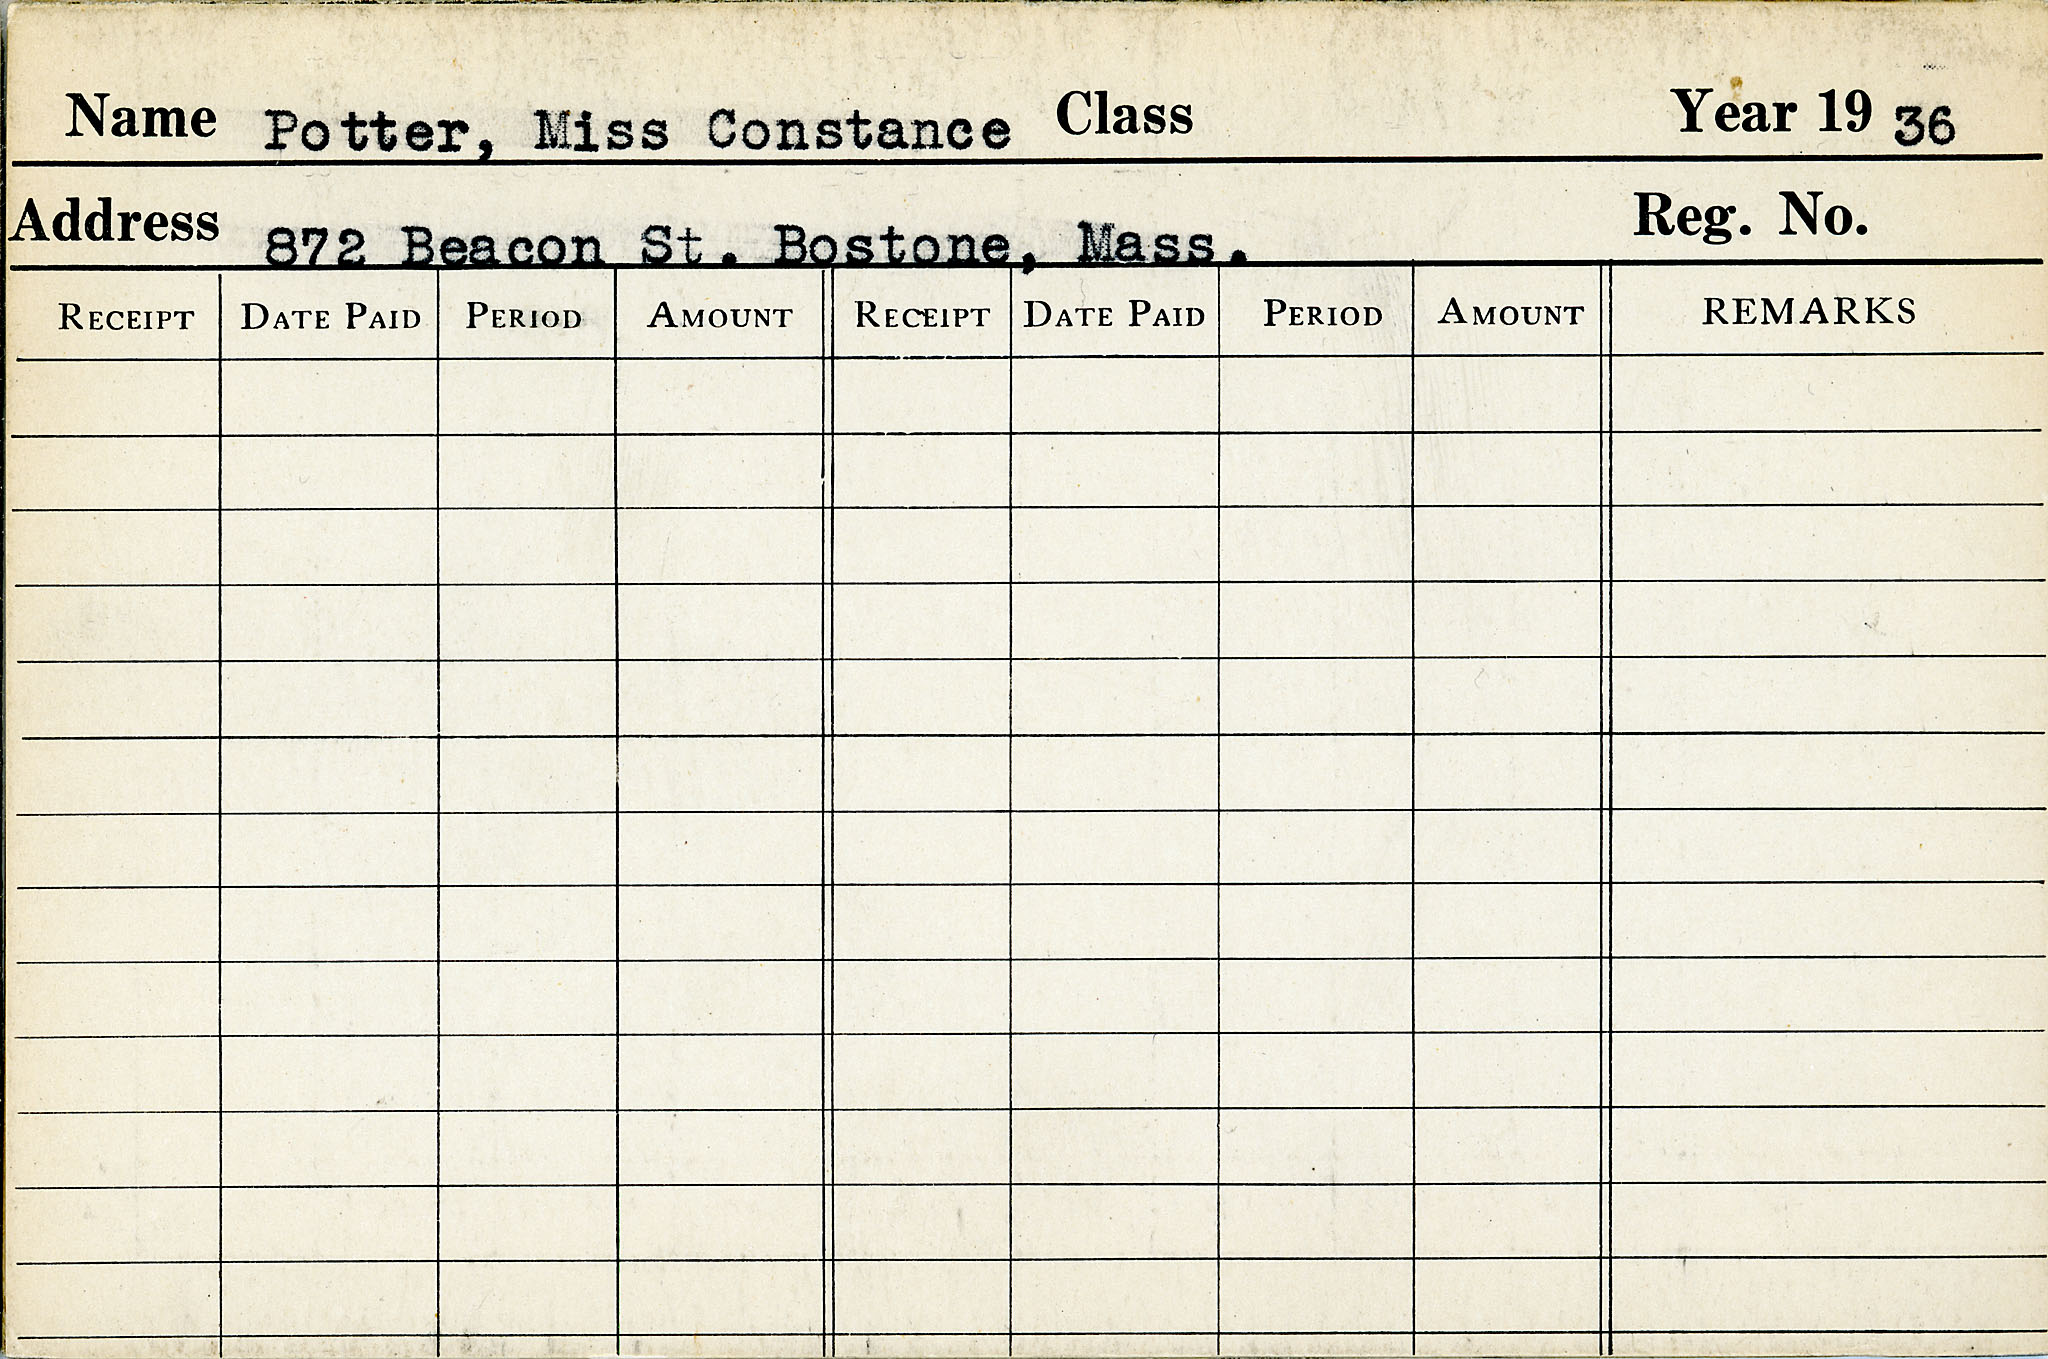 Name Potter, Miss Constance Class Year 19 36
Address 872 Beacon St. Bostone, Mass. Reg. No.
RECEIPT DATE PAID PERIOD AMOUNT RECEIPT DATE PAID PERIOD AMOUNT REMARKS